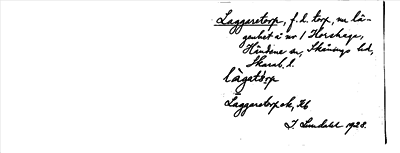 Laggaretorp, f. d. torp, nu lä-
genhet å nr 1 Horshage,
Händene sn, Skånings hd,
Skarab. l.
làgatòrp
Laggaretorp ek, Kb
I. Lundahl 1928.